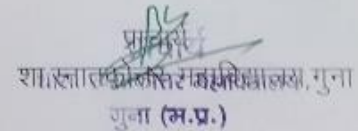 प्राचार्य
शा. स्नातकोत्तर महाविद्यालय, गुना
गुना (म.प्र.)